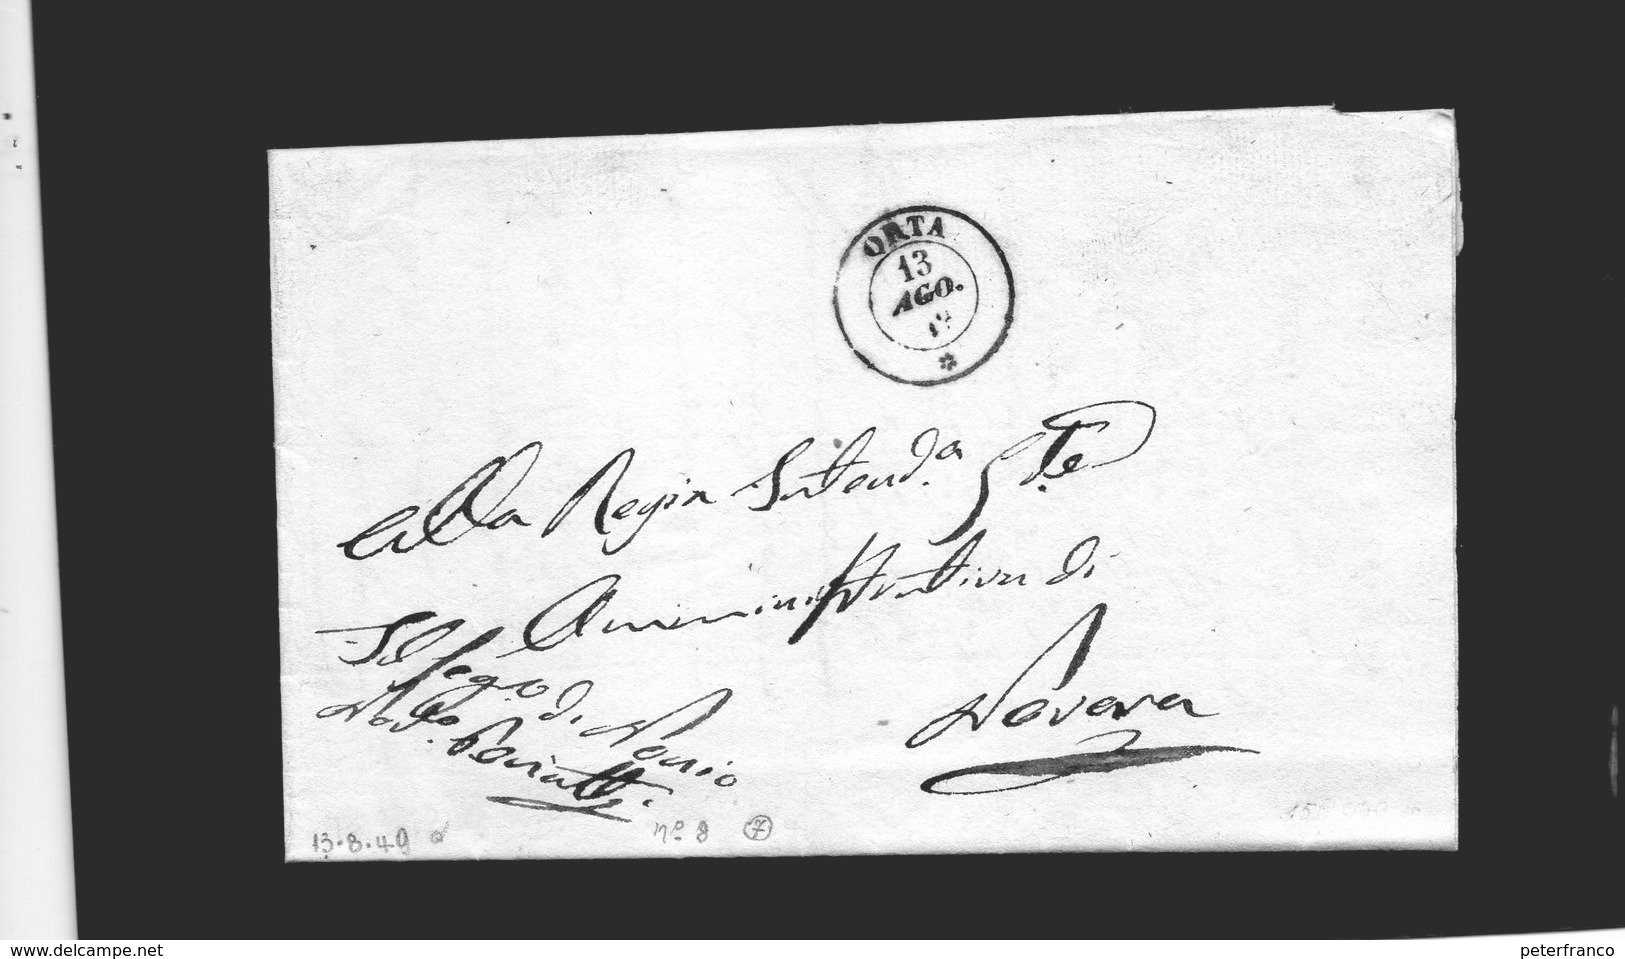 ORTA
13
AGO.
*
Alla Regia Intend.a G.le
Amministrativa di
Novara
Il Seg.o di
Not.o
13.8.49
n.o 8
7
www.delcampe.net
peterfranco